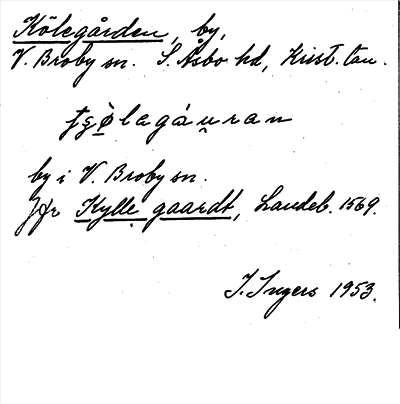 Kölegården, by,
V. Broby sn. S. Åsbo hd, Krist. län.
by i V. Broby sn.
Jfr Kylle gaardt, Landeb. 1569.
I. Ingers 1953.